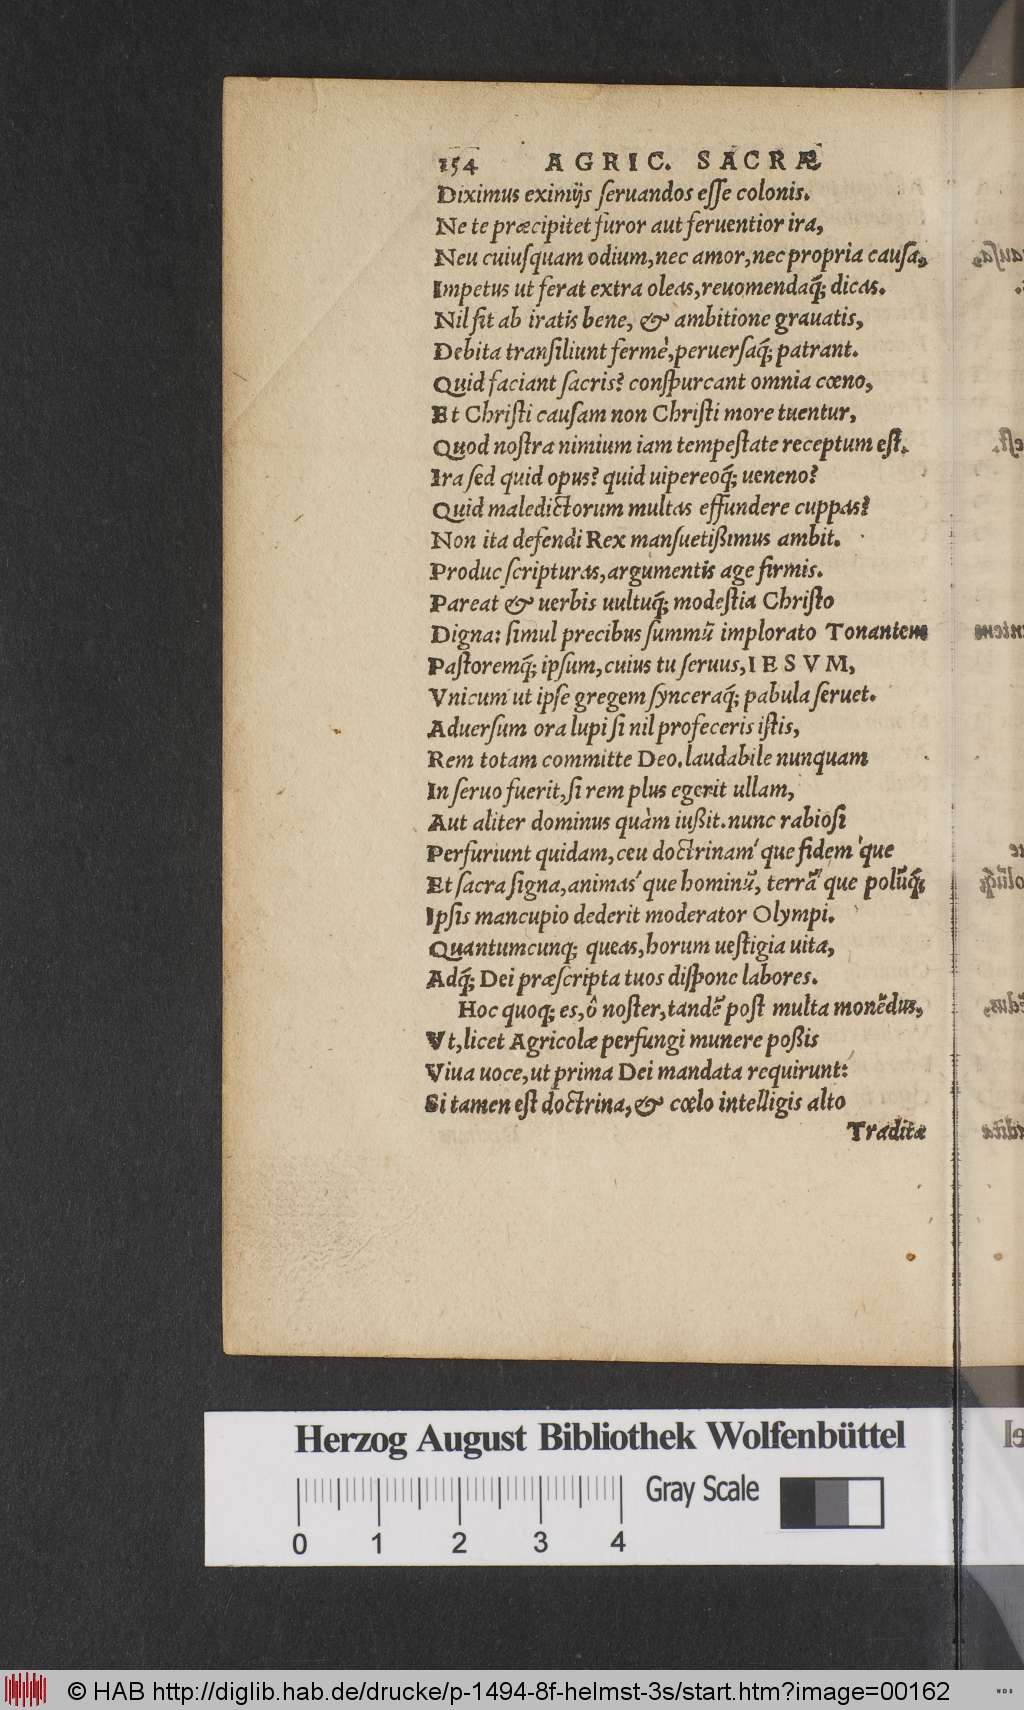 154 AGRIC. SACRÆ
Diximus eximijs ſeruandos eſſe colonis.
Ne te præcipitet furor aut feruentior ira,
Neu cuiuſquam odium, nec amor, nec propria cauſa,
Impetus ut ferat extra oleas, reuomendaq́; dicas.
Nil fit ab iratis bene, & ambitione grauatis,
Debita tranſiliunt fermè, peruerſaq́; patrant.
Quid faciant ſacris? conſpurcant omnia cœno,
Et Chriſti cauſam non Chriſti more tuentur,
Quod noſtra nimium iam tempeſtate receptum eſt.
Ira ſed quid opus? quid uipereoq́; ueneno?
Quid maledictorum multas effundere cuppas?
Non ita defendi Rex manſuetißimus ambit.
Produc ſcripturas, argumentis age firmis.
Pareat & uerbis uultuq́; modeſtia Chriſto
Digna: ſimul precibus ſummũ implorato Tonantem
Paſtoremq́; ipſum, cuius tu ſeruus, IESVM,
Vnicum ut ipſe gregem ſynceraq́; pabula ſeruet.
Aduerſum ora lupi ſi nil profeceris iſtis,
Rem totam committe Deo. laudabile nunquam
In ſeruo fuerit, ſi rem plus egerit ullam,
Aut aliter dominus quàm iußit. nunc rabioſi
Perfuriunt quidam, ceu doctrinam´que fidem´que
Et ſacra ſigna, animas´que hominũ, terrã´que polũq́;
Ipſis mancupio dederit moderator Olympi.
Quantumcunq; queas, horum ueſtigia uita,
Adq́; Dei præſcripta tuos diſpone labores.
Hoc quoq; es, ô noſter, tandẽ poſt multa monẽdus,
Vt, licet Agricolæ perfungi munere poßis
Viua uoce, ut prima Dei mandata requirunt:
Si tamen eſt doctrina, & cœlo intelligis alto
Tradita
Herzog August Bibliothek Wolfenbüttel
Gray Scale
0 1 2 3 4
© HAB http://diglib.hab.de/drucke/p-1494-8f-helmst-3s/start.htm?image=00162